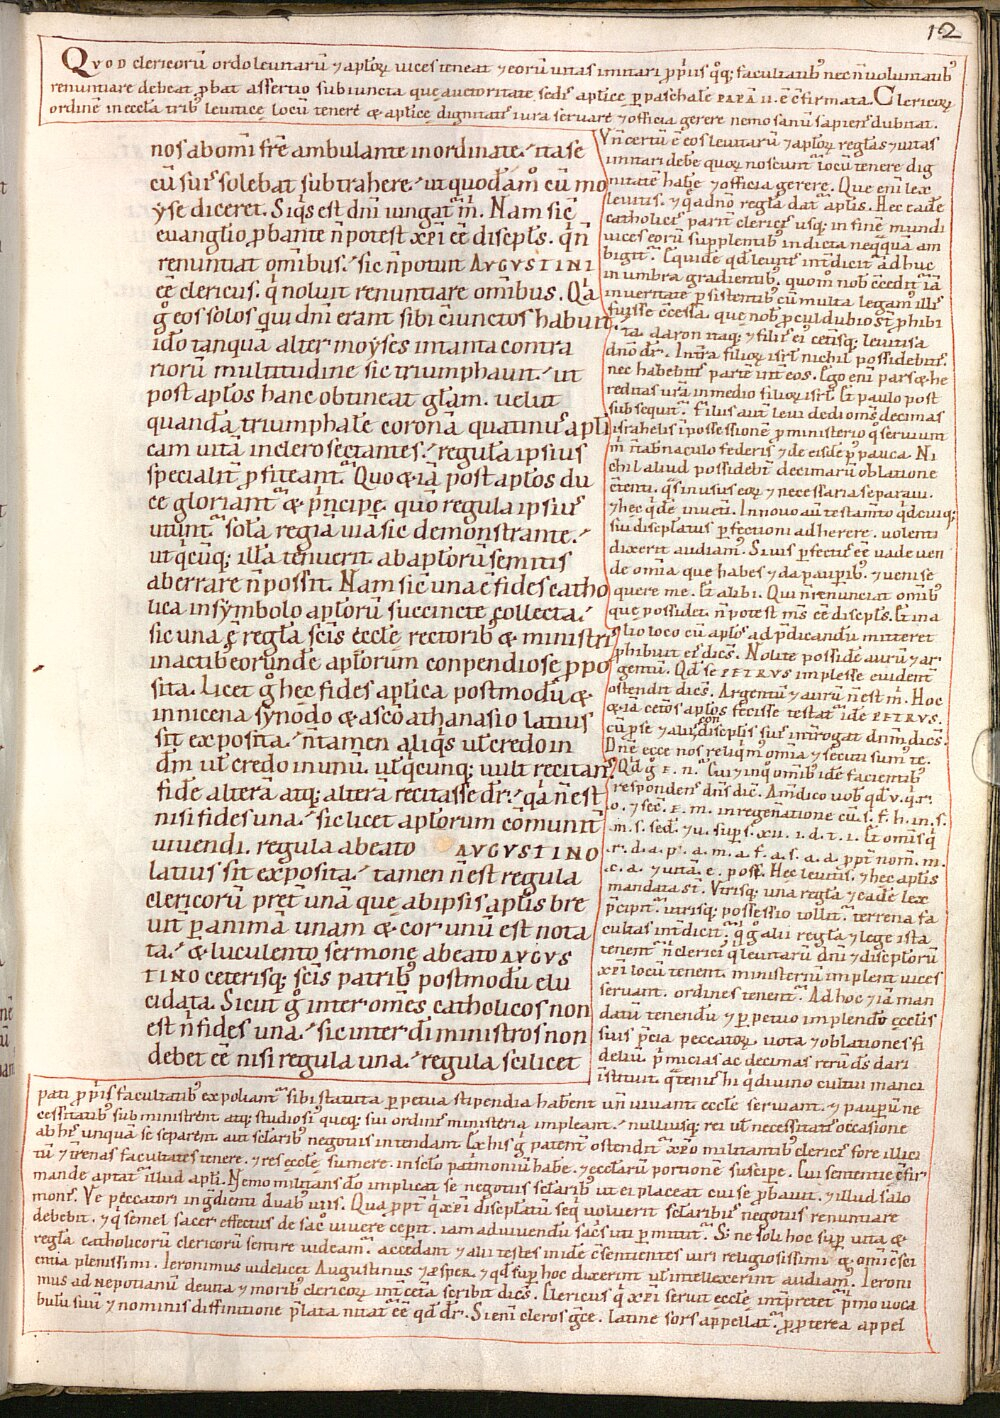 12
QVOD clericorū ordo leuitarū ⁊ apłoꝝ uices teneat ⁊ eorū uitas imitari ꝓpriis qͦqꝫ facultatibꝰ nec ñ uoluntatibꝰ
renuntiare debeat ꝓbat assertio subiuncta que auctoritate sedis aplice ꝑ paschalē PAPĀ II. ē cfirmata. Clericoꝝ
ordinē in eccła tribꝰ leuitice locū tenere & aplice dignitatis iura seruare ⁊ officia gerere nemo sanū sapiens dubitat.
nos ab omī frē ambulante inordinate. ita se
cū suis solebat subtrahere. ut quodām cū mo
yse diceret. Siqs est dñi iungatˀ m̄. Nam sic ī
euanglio ꝓbante ñ potest xp̄i ēē discipls. qͥ ñ
renuntiat omībus. sic ñ potuit AVGVSTINI
ēē clericus. qͥ noluit renuntiare omībus. Qͣa
gͦ eos solos qui dñi erant sibi ciunctos habuit.
idō tanquā alter moyses in tanta contra
riorū multitudine sic triumphauit. ut
post apłos hanc obtineat głam. uelut
quandā triumphalē coronā quatinus apłi
cam uitā in clero sectantes. regula ipsius
specialitˀ ꝓfiteantˀ. Quo & iā post apłos du
ce gloriantˀ & pͥncipe. quō regula ipsius
utuntˀ sola regiā uiā sic demonstrante.
ut qͥcūqꝫ illā tenuerit ab apłorū semitis
aberrare ñ possit. Nam sic una ē fides catho
lica in symbolo apłorū succincte collecta.
sic una ē regła scīs eccłe rectoribꝰ & ministris
in actibꝰ eorundē apłorum conpendiose ꝓpo
sita. Licet gͦ hec fides aplica postmodū &
in nicena synodo & a scō athanasio latius
sit exposita. ñ tamen aliqͥs uł credo in
dm̄ uł credo in unū. uł qͥcunqꝫ uult recitans
fidē alterā atqꝫ alterā recitasse dr̄. qͣa ñ est
nisi fides una. sic licet apłorum cōmunitˀ
uiuendi. regula a beato AVGVSTINO
latius sit exposita. tamen ñ est regula
clericorū pret̄ unā que ab ipsis apłis bre
uitˀ ꝑ animā unam & cor unū est nota
ta. & luculento sermone a beato AVGVS
TINO ceterisqꝫ scīs patribꝰ postmodū elu
cidata. Sicut gͦ inter omēs catholicos non
est ñ fides una. sic inter dī ministros non
debet ēē nisi regula una. regula scilicet
Vñ certū ē eos leuitarū ⁊ apłoꝝ regłas ⁊ uitas
imitari debē quoꝝ noscuntˀ locū tenere dig
nitatē habē ⁊ officia gerere. Que enī lex
leuitis. ⁊ qͣ a dño regła datˀ apłis. Hec eadē
catholicis paritˀ clericis usqꝫ in finē mundi
uices eorū supplentibꝰ indicta neqͣquā am
bigitˀ. Et quidē qd leuitis intˀdicitˀ adhuc
in umbra gradientibꝰ. quom̄ nobꝰ cceditˀ iā
in ueritate ꝑsistentibꝰ cū multa legamˀ illis
fuisse ccessa. que nobꝰ ꝓcul dubio st̄ ꝓhibi
ta. aaron itaqꝫ ⁊ filiis ei cetisqꝫ leuitis a
dño dr̄. Intra filioꝝ isrł nichil possidebitis
nec habebitis partē intˀ eos. Ego enī pars & he
reditas ura in medio filioꝝ isrł. Et paulo post
subsequitˀ. Filiis autˀ leui dedi omēs decimas
israhelis ī possessionē ꝓ ministerio qͦ seruiunt
m̄ ī tabnaculo federis ⁊ de eisdē ꝑ pauca. Ni
chil aliud possidebt̄ decimarū oblatione
ctenti. qͣs in usus eoꝝ ⁊ necessaria separaui.
⁊ hec qͥdē in ueti. In nouo aū testamto qͥdē cuiqꝫ
sui discipłatus ꝑfectioni adherere. uolenti
dixerit audiamˀ. Si uis ꝑfectus ēē uade uen
de omīa que habes ⁊ da pauꝑibꝰ. ⁊ ueni se
quere me. Et alibi. Qui ñ renunciat omībꝰ
que possidet. ñ potest ms̄ ēē discipłs. Et in a
lio loco cū apłos ad pͥdicandū mitteret
ꝓhibuit eis dics̄. Nolite possidē aurū ⁊ ar
gentū. Qd se PETRVS implesse euidentˀ
ostendit dics̄. Argentū ⁊ aurū ñ est m̄. Hoc
& iā cetos apłos fecisse testatˀ idē PETRVS.
cū ꝑ se ⁊ aliis con disciplis suis intˀrogat dnm̄ dics̄.
Dñe ecce nos reliqmˀ omīa ⁊ secuti sumˀ te.
Qͥd gͦ e. n. Cui ⁊ in qͦ omībꝰ idē facientibꝰ
respondens dn̄s dic̄. Am̄ dico uobꝰ qd v. q. r.
o. ⁊ sec̄. e. m. in regeñatione cū. s. f. h. in. s.
m. s. sed. ⁊ u. supˀ s. xii. i. d. t. i. Et omīs q
r. d. a. p. a. m. a. f. a. s. a. a. ppt̄ nom̄. m.
c. a. ⁊ uitā. e. poss. Hec leuitis. ⁊ hec apłis
mandata st̄. Vtrisqꝫ una regła ⁊ eadē lex
pͥcipitˀ. utrisqꝫ possessio tollitˀ. terrena fa
cultas intˀdicitˀ. qͥ gͦ alii regła ⁊ lege ista
tenentˀ ñ clerici qͥ leuitarū dñi ⁊ discipłorū
xp̄i locū tenent. ministeriū implent uices
seruant. ordines tenentˀ. Ad hoc ⁊ iā man
datū tenendū ⁊ ꝑpetuo implendō eccłis
suis pͥcia peccatoꝝ. uota ⁊ oblationes fi
deliū pͥmicias ac decimas rerū ds̄ dari
īstituit. qͣtenus hi qͥ diuino cultui manci
pati ꝓpriis facultatibꝰ expoliantˀ sibi statuta ꝑpetua stipendia habent uñ uiuant. eccłe seruant. ⁊ pauꝑū ne
cessitatibꝰ subministrent. atqꝫ studiosi queqꝫ sui ordinis ministeria impleant. nulliusqꝫ rei uł necessitatis occasione
ab his unquā se separent. aut scłaribꝰ negotiis intendant. Ex his gͦ patentˀ ostenditˀ xp̄o militantibꝰ clericis fore illici
tū ⁊ trenas facultates tenere. ⁊ res eccłe sumere. in scło patrimoniū habē. ⁊ eccłarū portionē suscipe. Cui sententie cfir
mande aptatˀ illud apłi. Nemo militans dō implicat se negotiis scłaribꝰ ut ei placeat cui se ꝓbauit. ⁊ illud salo
monis. Ve peccatori ingͥdienti duabꝰ uiis. Qua ppt̄ qͥ xp̄i discipłatū seqͥ uoluerit scłaribus negotiis renuntiare
debebit. ⁊ qͥ semel sacer effectus de sacͥs uiuere cepit. iam ad uiuendū sacͥs uti ꝑmititˀ. Si ne soli hoc supˀ uita &
regła catholicorū clericorū sentire uideamˀ. accedant ⁊ alii testes in idē csentientes uiri religiosissimi qͥ omī sci
entia plenissimi. Ieronimus uidelicet Augustinus ⁊ ꝓsper. ⁊ qd supˀ hoc dixerint uł intellexerint audiamˀ. Ieroni
mus ad Nepotianū de uita ⁊ moribꝰ clericoꝝ intˀ ceta scribit dics̄. Clericus qͥ xp̄i seruit eccłe intˀpretetˀ pͥmo uoca
bulū suū ⁊ nominis diffinitione ꝓlata nitatˀ ēē qd dr̄. Si enī cleros gͣce. latine sors appellatˀ. ꝓpterea appel